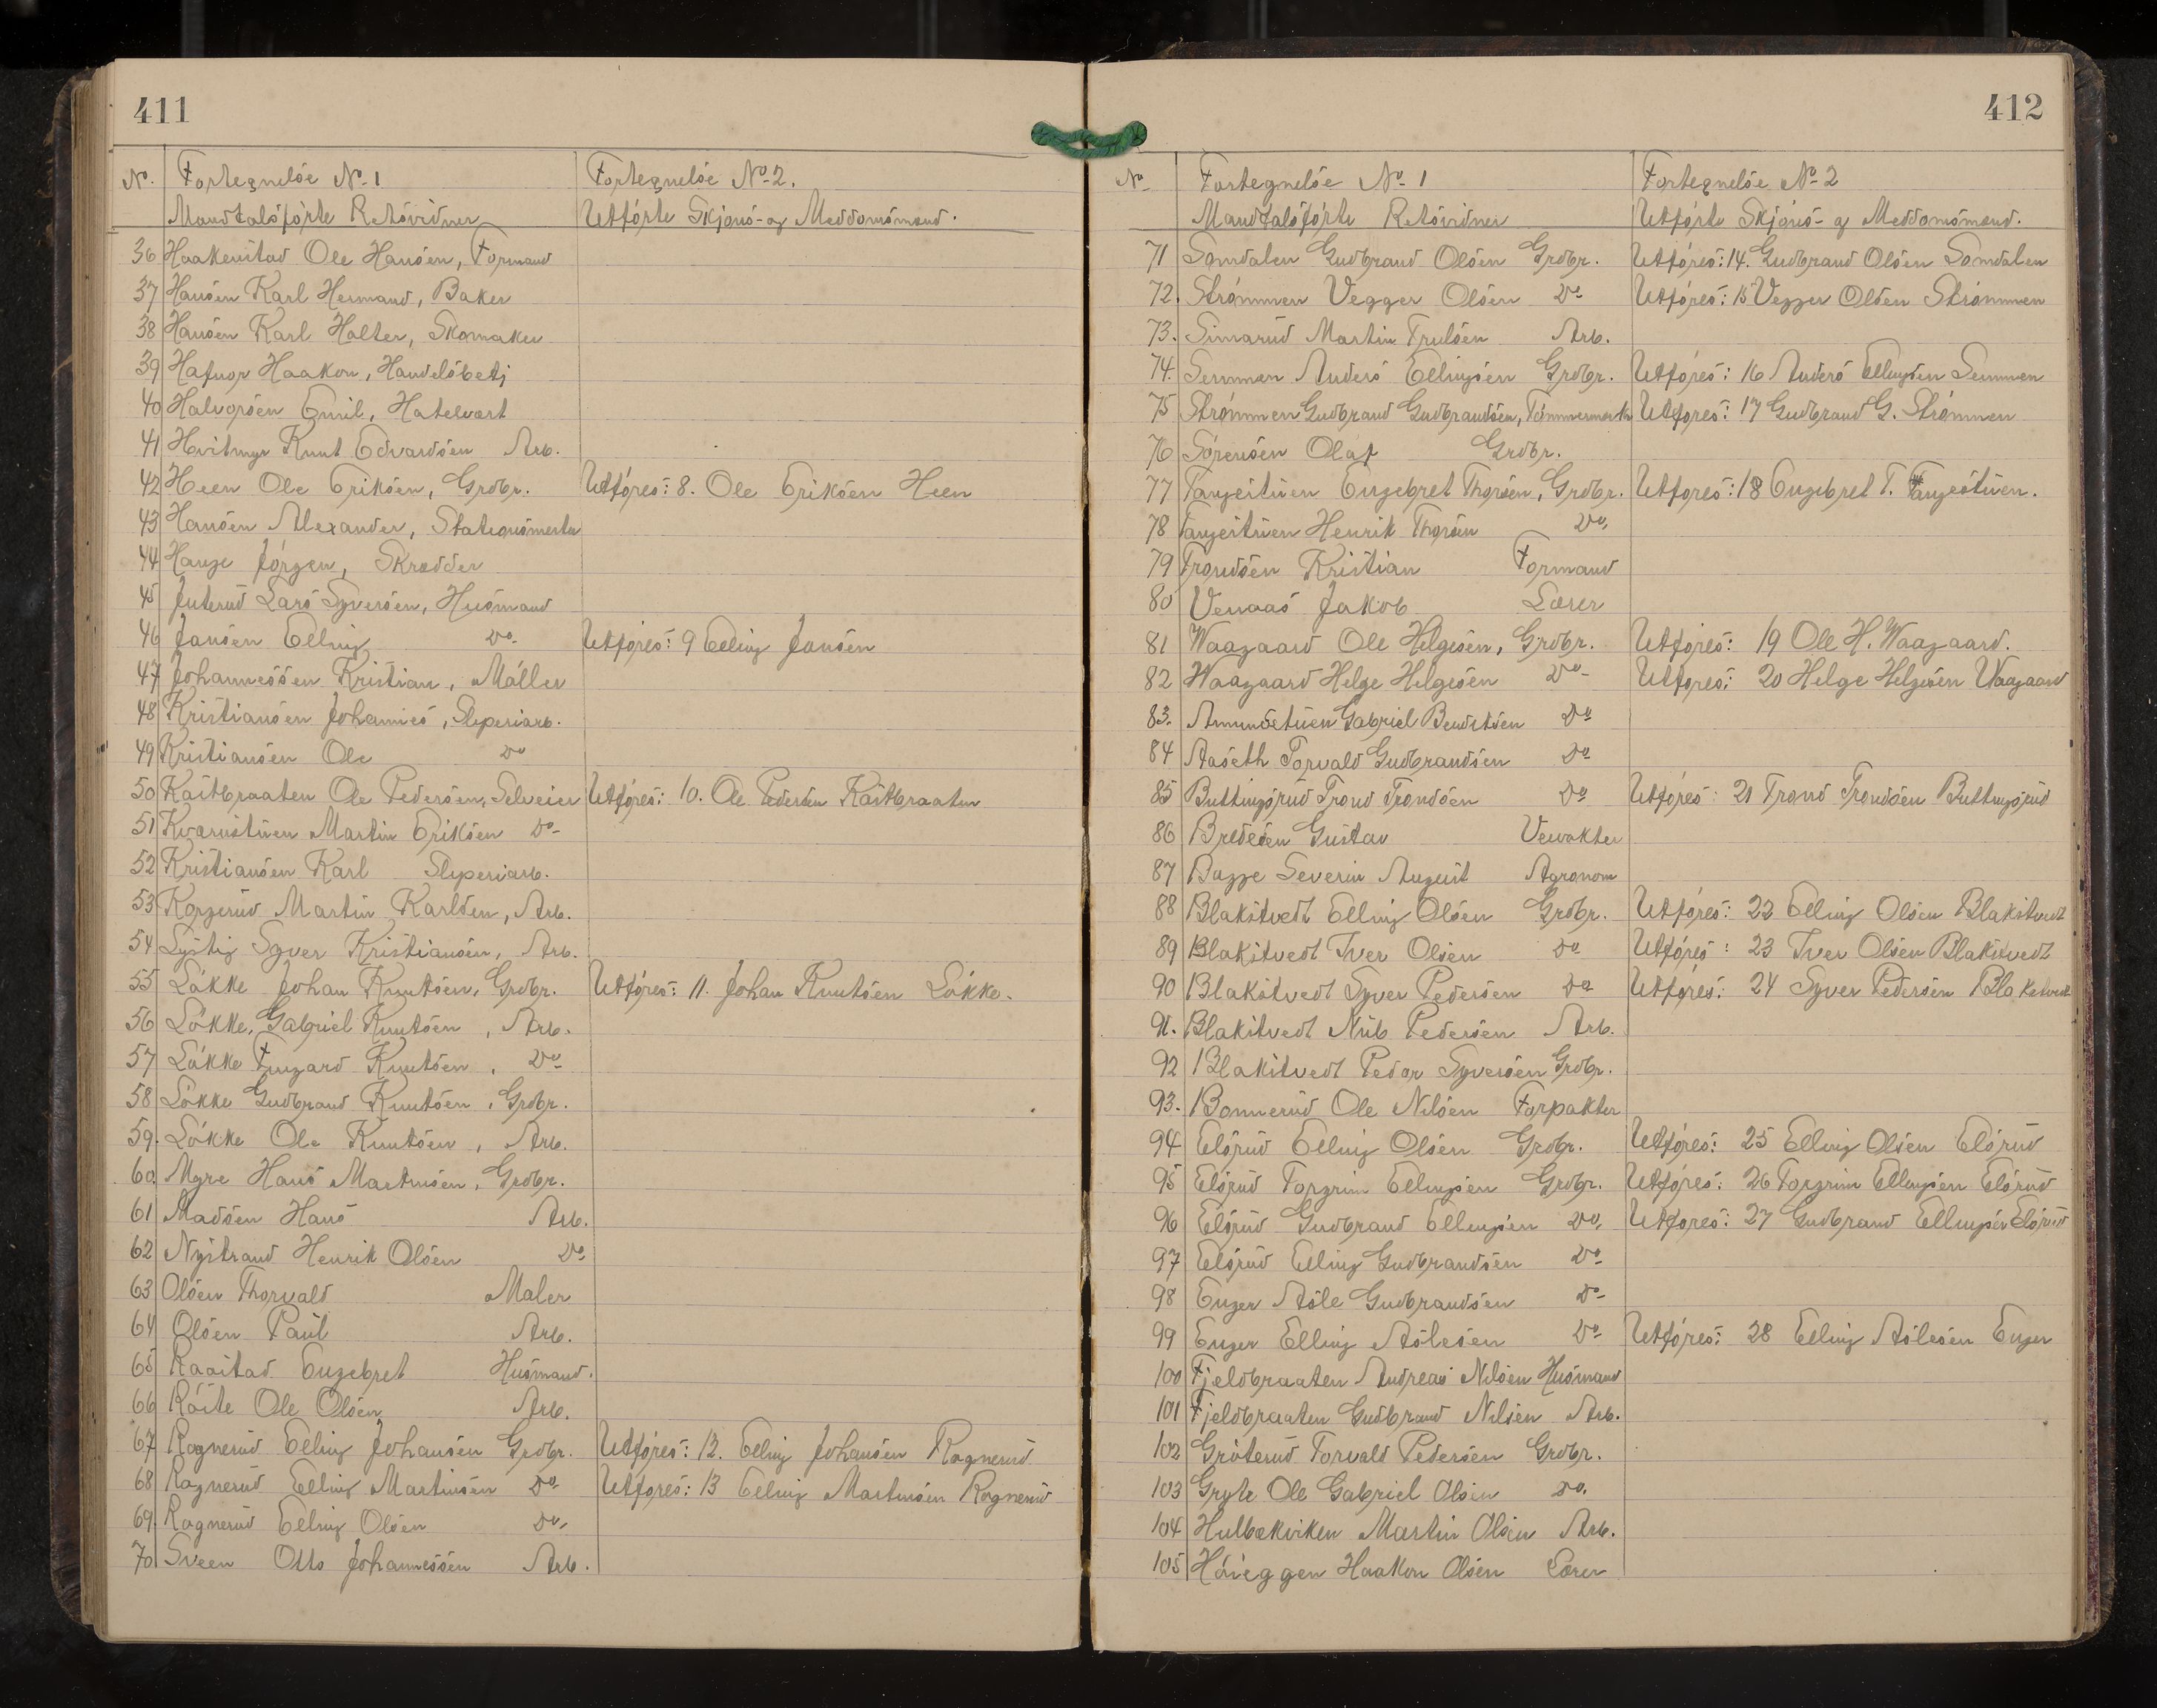 411
No. Fortegnelse No. 1 Fortegnelse No. 2.
Mandtalsførte Retsvidner Utførte Skjøns- og Meddomsmænd.
36 Haakenstad Ole Hansen, Formand
37 Hansen Karl Hermand, Baker
38 Hansen Karl Halter, Skomaker
39 Hafnor Haakon, Handelsbetj
40 Halvorsen Emil, Hotelvært
41 Hvitmyr Knut Edvardsen Arb.
42 Heen Ole Eriksen, Grdbr. Utføres: 8. Ole Eriksen Heen
43 Hansen Alexander, Stationsmester
44 Hauge Jørgen, Skrædder
45 Juterud Lars Syversen, Husmand
46 Jansen Elling Do. Utføres: 9 Elling Jansen
47 Johannessen Kristian, Møller
48 Kristiansen Johannes, Sliperiarb.
49 Kristiansen Ole Do
50 Kastbraaten Ole Pedersen, Selveier Utføres: 10. Ole Pedersen Kastbraaten
51 Kvernstuen Martin Eriksen Do.
52 Kristiansen Karl Sliperiarb.
53 Korgerud Martin Karlsen, Arb.
54 Lystig Syver Kristiansen, Arb.
55 Løkke Johan Knutsen, Grdbr. Utføres: 11. Johan Knutsen Løkke.
56 Løkke, Gabriel Knutsen, Arb.
57 Løkke Fingard Knutsen, Do
58 Løkke Gudbrand Knutsen, Grdbr.
59. Løkke Ole Knutsen, Arb.
60. Myre Hans Martinsen, Grdbr.
61 Madsen Hans Arb.
62 Nystrand Henrik Olsen Do.
63 Olsen Thorvald Maler
64 Olsen Paul Arb.
65 Raastad Engebret Husmand.
66 Røste Ole Olsen Arb.
67 Rognerud Elling Johansen Grdbr. Utføres: 12. Elling Johansen Rognerud
68 Rognerud Elling Martinsen Do. Utføres: 13 Elling Martinsen Rognerud
69. Rognerud Elling Olsen Do.
70 Sveen Otto Johannessen Arb.
412
No Fortegnelse No. 1 Fortegnelse No. 2
Mandtalsførte Retsvidner Utførte Skjøns- og Meddomsmænd.
71 Somdalen Gudbrand Olsen Grdbr. Utføres: 14. Gudbrand Olsen Somdalen
72. Strømmen Vegger Olsen Do Utføres: 15 Vegger Olsen Strømmen
73. Simarud Martin Trulsen Arb.
74. Semmen Anders Ellingsen Grdbr. Utføres: 16 Anders Ellingsen Semmen
75 Strømmen Gudbrand Gudbrandsen, Tømmermerk Utføres: 17 Gudbrand G. Strømmen
76 Sørensen Olaf Grdbr.
77 Tangestuen Engebret Thorsen, Grdbr. Utføres: 18 Engebret T. Tangestuen.
78 Tangestuen Henrik Thorsen Do.
79 Trondsen Kristian Formand
80 Venaas Jakob Lærer
81 Waagaard Ole Helgesen, Grdbr. Utføres: 19 Ole H. Waagaard.
82 Waagaard Helge Helgesen Do. Utføres: 20 Helge Helgesen Waagaard
83. Amundstuen Gabriel Berntsen Do
84 Aaseth Torvald Gudbrandsen Do
85 Buttingsrud Trond Trondsen Do Utføres: 21 Trond Trondsen Buttingsrud
86 Bredesen Gustav Vevakter
87 Bagge Severin August Agronom
88 Blakstvedt Elling Olsen Grdbr. Utføres: 22 Elling Olsen Blakstvedt
89 Blakstvedt Iver Olsen Do Utføres: 23 Iver Olsen Blakstvedt
90 Blakstvedt Syver Pedersen Do Utføres: 24 Syver Pedersen Blakstvedt
91. Blakstvedt Nils Pedersen Arb.
92 Blakstvedt Peder Syversen Grdbr.
93. Bonnerud Ole Nilsen Forpakter
94 Elsrud Elling Olsen Grdbr. Utføres: 25 Elling Olsen Elsrud
95 Elsrud Torgrim Ellingsen Grdbr. Utføres: 26 Torgrim Ellingsen Elsrud
96 Elsrud Gudbrand Ellingsen Do. Utføres: 27 Gudbrand Ellingsen Elsrud
97 Elsrud Elling Gudbrandsen Do
98 Enger Asle Gudbrandsen Do
99 Enger Elling Aslesen Do Utføres: 28 Elling Aslesen Enger
100 Fjeldbraaten Andreas Nilsen Husmand
101 Fjeldbraaten Gudbrand Nilsen Arb.
102 Grøterud Torvald Pedersen Grdbr.
103 Gryte Ole Gabriel Olsen Do.
104 Hulbækviken Martin Olsen Arb.
105 Høieggen Haakon Olsen Lærer